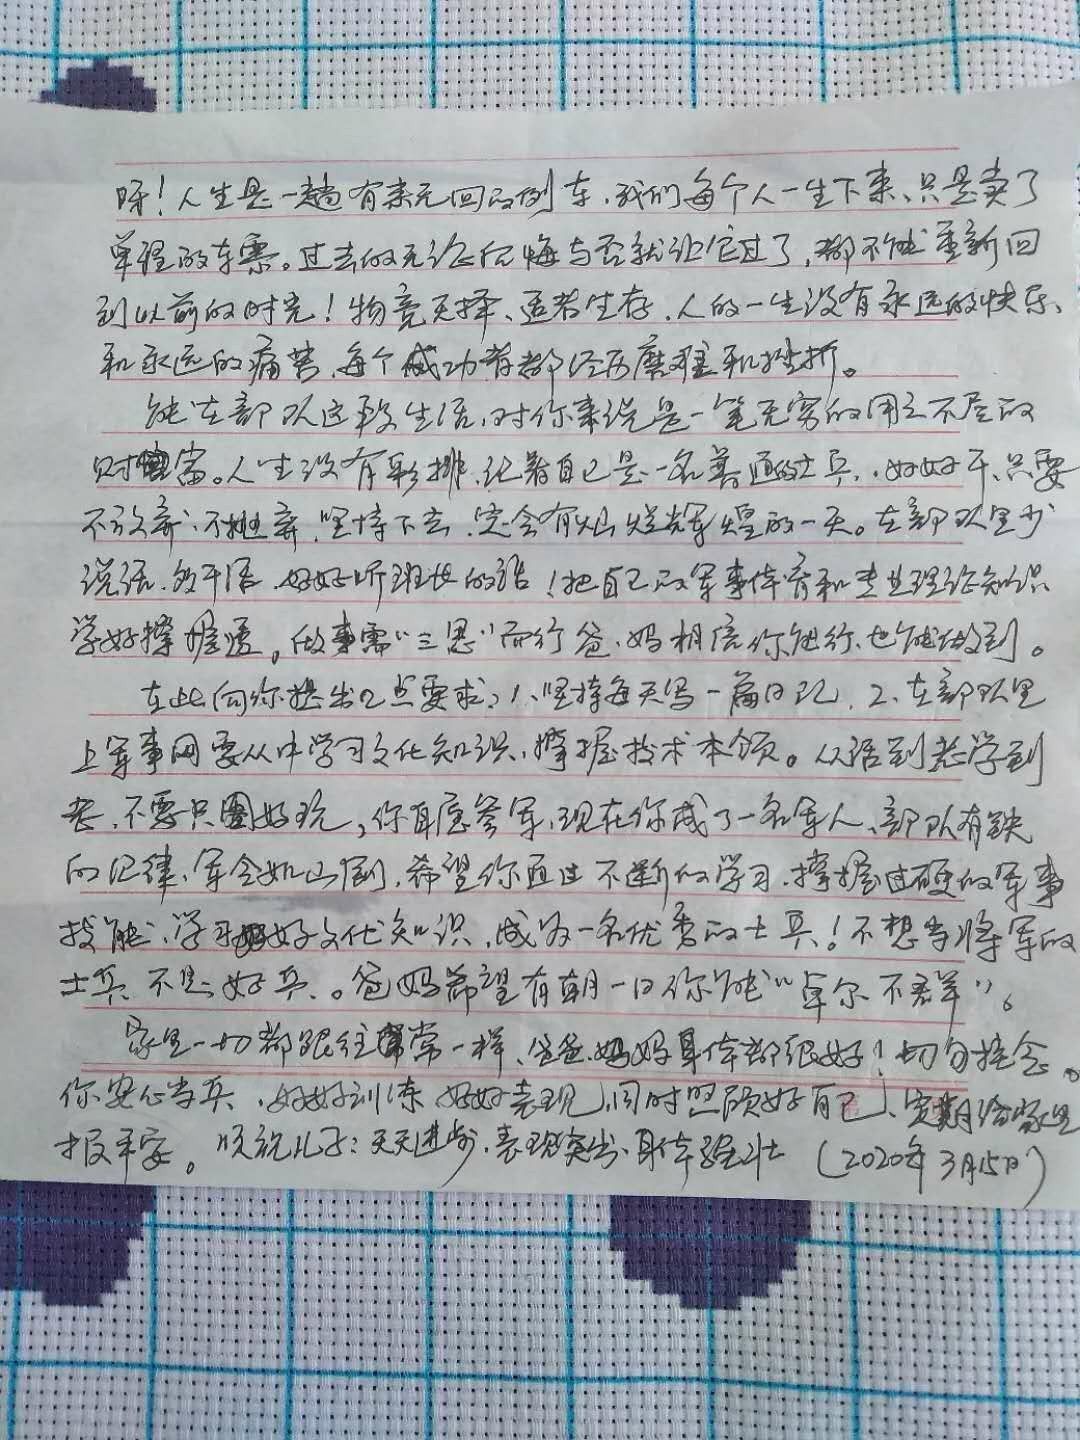 呀！人生是一趟有来无回的列车，我们每个人一生下来、只是卖了
单程的车票。过去的无论后悔与否就让它过了，都不能重新回
到以前的时光！物竞天择、适者生存，人的一生没有永远的快乐、
和永远的痛苦，每个成功者都经历磨难和挫折。
能在部队这段生活，对你来说是一笔无穷的用之不尽的
财富。人生没有彩排，记着自己是一名普通的士兵，好好干，只要
不放弃、不抛弃，坚持下去，定会有灿烂辉煌的一天。在部队里少
说话，多干活，好好听班长的话！把自己的军事体育和专业理论知识
学好掌握透，做事需“三思”而行爸、妈相信你能行、也能做到。
在此向你提出2点要求：1、坚持每天写一篇日记，2、在部队里
上军事网要从中学习文化知识、掌握技术本领。人活到老学到
老，不要只图好玩，你耳应参军，现在你成了一名军人、部队有铁
的纪律、军令如山倒，希望你通过不断的学习，掌握过硬的军事
技能，学习好文化知识，成为一名优秀的士兵！不想当将军的
士兵不是好兵。爸妈希望有朝一日你能“卓尔不群”。
家里一切都跟往常一样、爸爸、妈妈身体都很好！切勿挂念。
你安心当兵，好好训练，好好表现，同时照顾好自己、定期给家里
报平安。顺祝儿子：天天进步，表现突出、身体强壮（2020年3月15日）